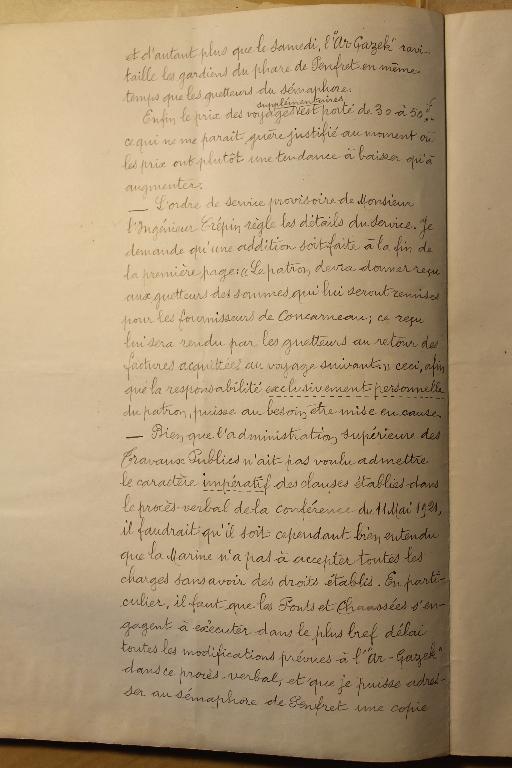 et d'autant plus que le samedi, l'"Ar Gazek" ravi-
taille les gardiens du phare de Penfret en même
temps que les guetteurs du sémaphore.
supplémentaires
Enfin le prix des voyages est porté de 30 à 50f.
ce qui ne me paraît guère justifié au moment où
les prix ont plutôt une tendance à baisser qu'à
augmenter.
— L'ordre de service provisoire de Monsieur
l'Ingénieur Crépin règle les détails du service. Je
demande qu'une addition soit faite à la fin de
la première page: "Le patron devra donner reçu
aux guetteurs des sommes qui lui seront remises
pour les fournisseurs de Concarneau; ce reçu
lui sera rendu par les guetteurs au retour des
factures acquittées au voyage suivant." ceci, afin
que la responsabilité exclusivement personnelle
du patron, puisse au besoin être mise en cause.
— Bien que l'administration supérieure des
Travaux Publics n'ait pas voulu admettre
le caractère impératif des clauses établies dans
le procès-verbal de la conférence du 11 Mai 1921,
il faudrait qu'il soit cependant bien entendu
que la Marine n'a pas à accepter toutes les
charges sans avoir des droits établis. En parti-
culier, il faut que les Ponts et Chaussées s'en-
gagent à exécuter dans le plus bref délai
toutes les modifications prévues à l'"Ar-Gazek"
dans ce procès-verbal, et que je puisse adres-
ser au sémaphore de Penfret une copie